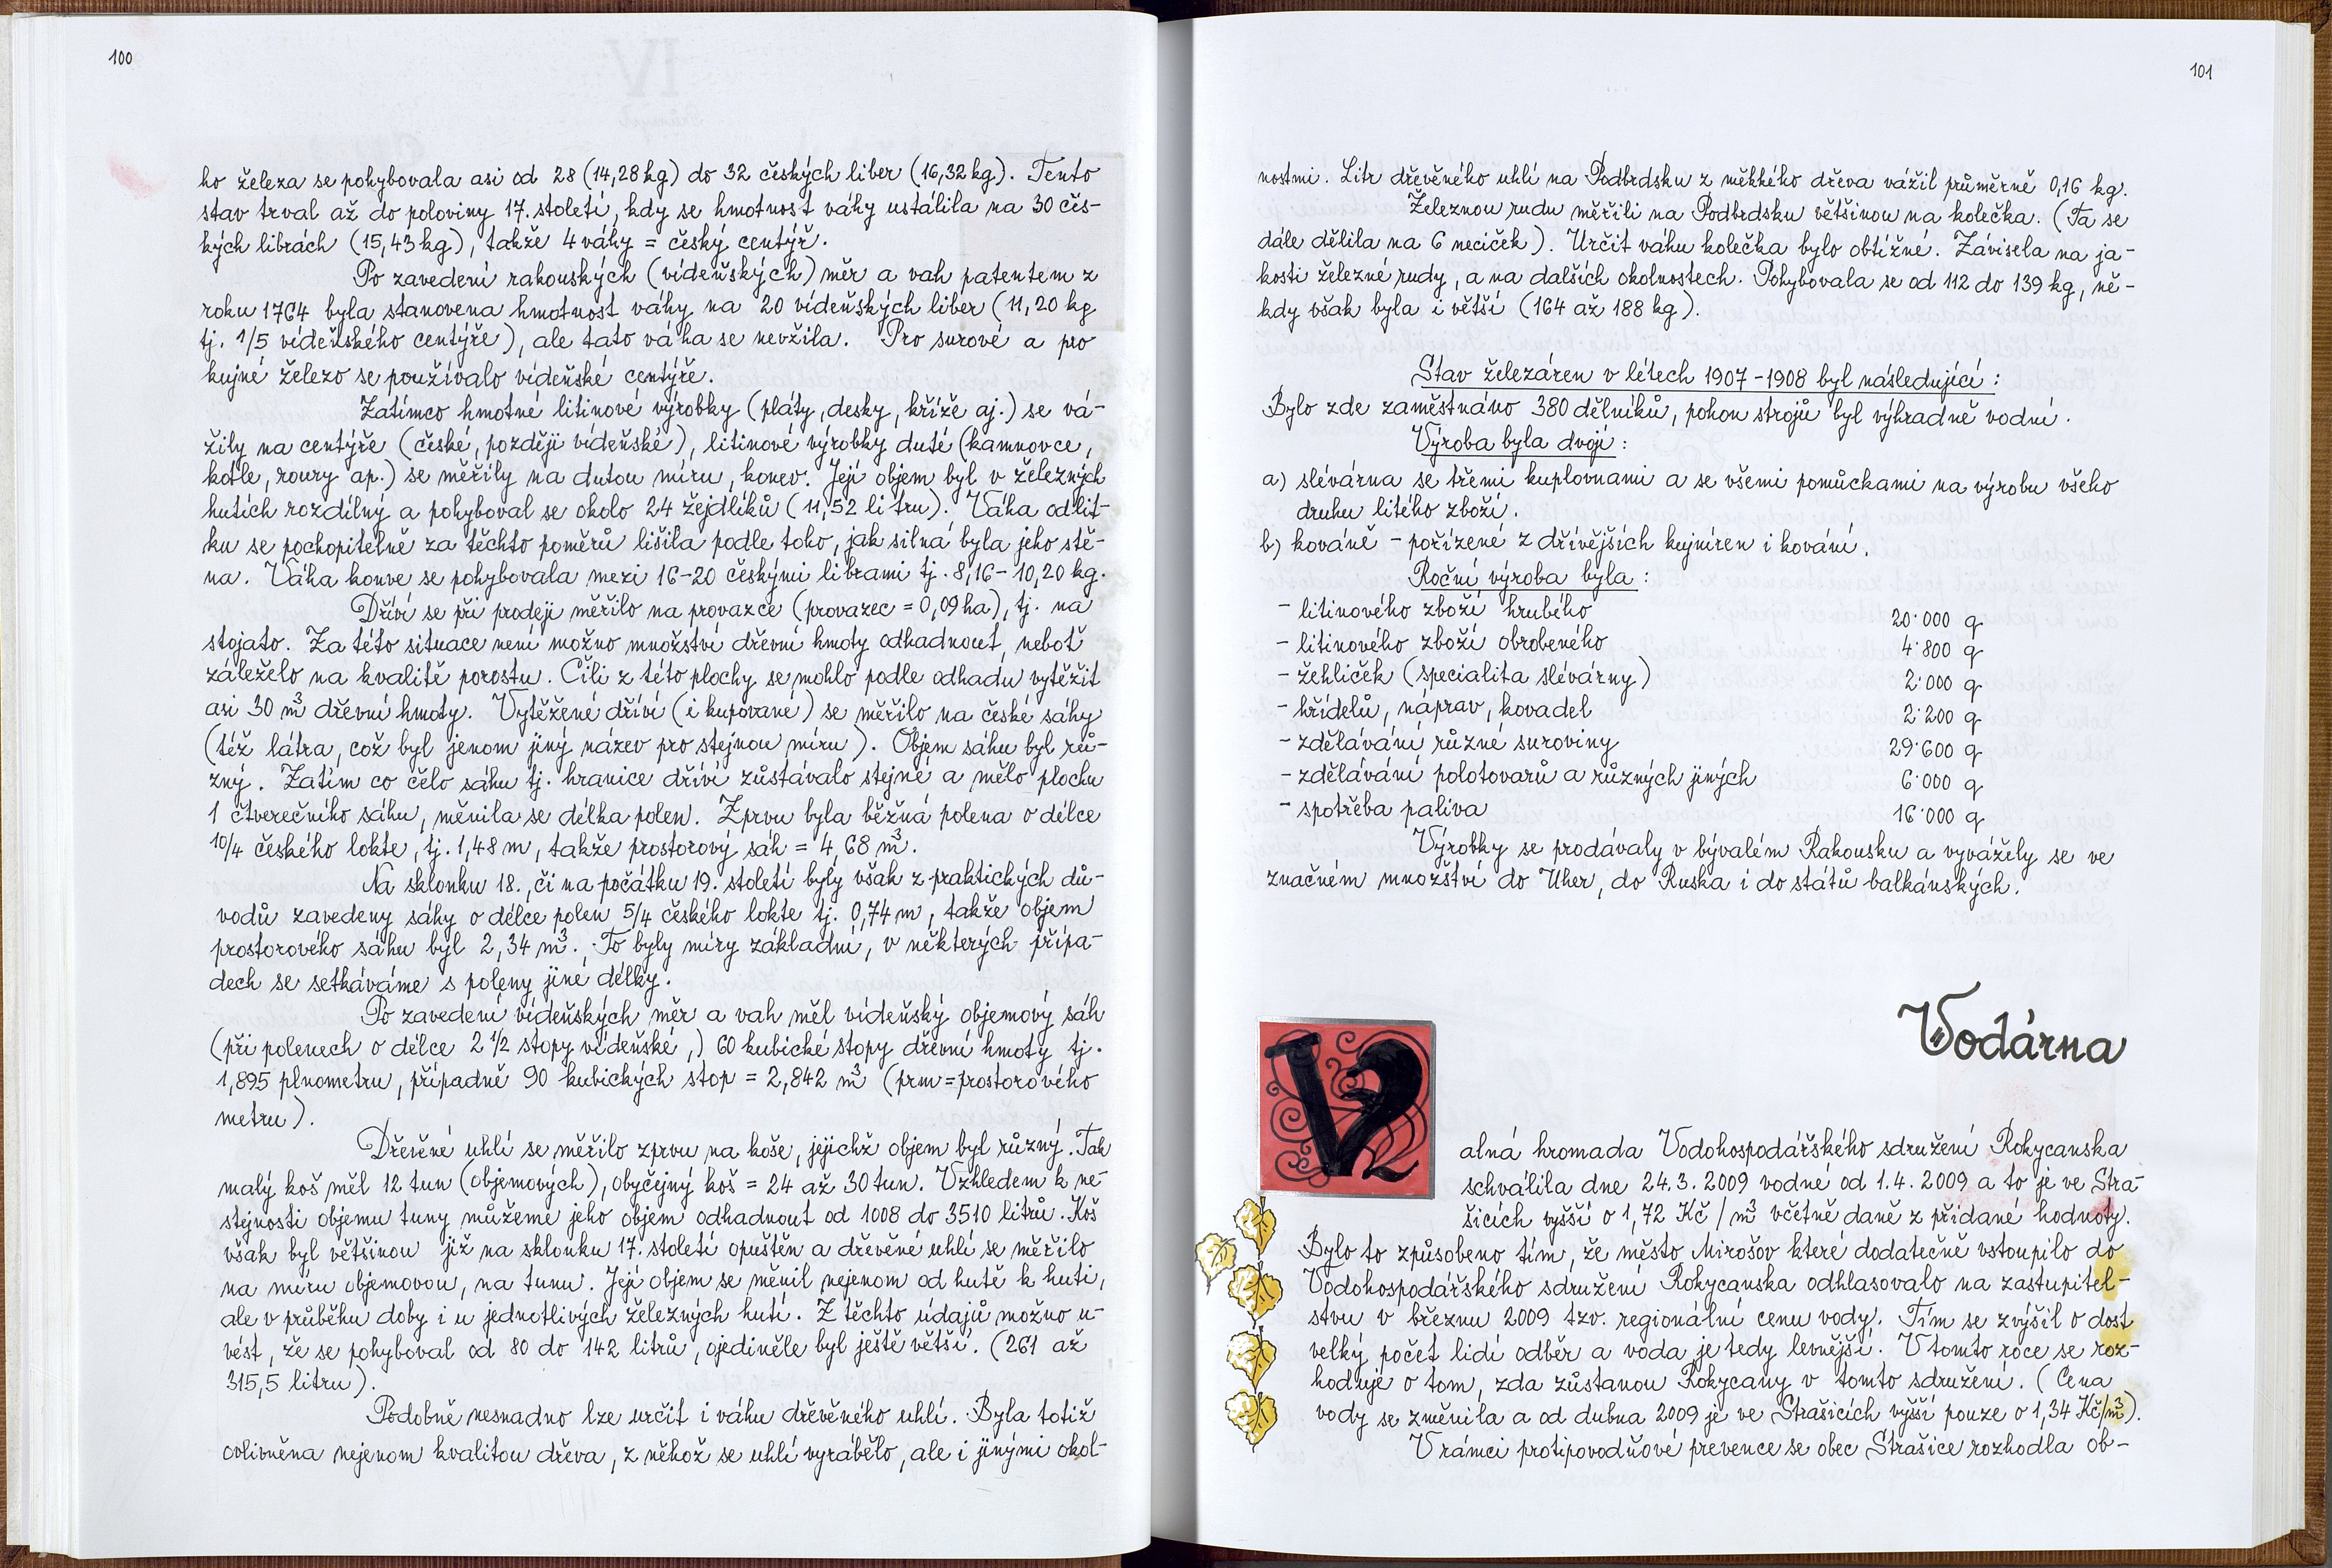 100
ho železa se pohybovala asi od 28 (14,28 kg) do 32 českých liber (16,32 kg). Tento
stav trval až do poloviny 17. století, kdy se hmotnost váhy ustálila na 30 čes-
kých librách (15,43 kg), takže 4 váhy = český centýř.
Po zavedení rakouských (vídeňských) měr a vah patentem z
roku 1764 byla stanovena hmotnost váhy na 20 vídeňských liber (11,20 kg
tj. 1/5 vídeňského centýře), ale tato váha se nevžila. Pro surové a pro
kujné železo se používalo vídeňské centýře.
Zatímco hmotné litinové výrobky (pláty, desky, kříže aj.) se vá-
žily na centýře (české, později vídeňské), litinové výrobky duté (kamnovce,
kotle, roury ap.) se měřily na dutou míru, konev. Její objem byl v železných
hutích rozdílný a pohyboval se okolo 24 žejdlíků (11,52 litru). Váha odlit-
ku se pochopitelně za těchto poměrů lišila podle toho, jak silná byla jeho stě-
na. Váha konve se pohybovala mezi 16-20 českými librami tj. 8,16 - 10,20 kg.
Dříví se při prodeji měřilo na provazce (provazec = 0,09 ha), tj. na
stojato. Za této situace není možno množství dřevní hmoty odhadnout, neboť
záleželo na kvalitě porostu. Čili z této plochy se mohlo podle odhadu vytěžit
asi 30 m³ dřevní hmoty. Vytěžené dříví (i kupované) se měřilo na české sáhy
(též látra, což byl jenom jiný název pro stejnou míru). Objem sáhu byl rů-
zný. Zatím co čelo sáhu tj. hranice dříví zůstávalo stejné a mělo plochu
1 čtverečního sáhu, měnila se délka polen. Zprvu byla běžná polena o délce
10/4 českého lokte, tj. 1,48 m, takže prostorový sáh = 4,68 m³.
Na sklonku 18., či na počátku 19. století byly však z praktických dů-
vodů zavedeny sáhy o délce polen 5/4 českého lokte tj. 0,74 m, takže objem
prostorového sáhu byl 2,34 m³. To byly míry základní, v některých přípa-
dech se setkáváme s poleny jiné délky.
Po zavedení vídeňských měr a vah měl vídeňský objemový sáh
(při polenech o délce 2 1/2 stopy vídeňské,) 60 kubické stopy dřevní hmoty tj.
1,895 plnometru, případně 90 kubických stop = 2,842 m³ (prm = prostorového
metru).
Dřevěné uhlí se měřilo zprvu na koše, jejichž objem byl různý. Tak
malý koš měl 12 tun (objemových), obyčejný koš = 24 až 30 tun. Vzhledem k ne-
stejnosti objemu tuny můžeme jeho objem odhadnout od 1008 do 3510 litrů. Koš
však byl většinou již na sklonku 17. století opuštěn a dřevěné uhlí se měřilo
na míru objemovou, na tunu. Její objem se měnil nejenom od hutě k huti,
ale v průběhu doby i u jednotlivých železných hutí. Z těchto údajů možno u-
vést, že se pohyboval od 80 do 142 litrů, ojediněle byl ještě větší. (261 až
315,5 litru).
Podobně nesnadno lze určit i váhu dřevěného uhlí. Byla totiž
ovlivněna nejenom kvalitou dřeva, z něhož se uhlí vyrábělo, ale i jinými okol-
101
nostmi. Litr dřevěného uhlí na Podbrdsku z měkkého dřeva vážil průměrně 0,16 kg.
Železnou rudu měřili na Podbrdsku většinou na kolečka. (Ta se
dále dělila na 6 neciček). Určit váhu kolečka bylo obtížné. Závisela na ja-
kosti železné rudy, a na dalších okolnostech. Pohybovala se od 112 do 139 kg, ně-
kdy však byla i větší (164 až 188 kg).
Stav železáren v létech 1907 - 1908 byl následující:
Bylo zde zaměstnáno 380 dělníků, pohon strojů byl výhradně vodní.
Výroba byla dvojí:
a) slévárna se třemi kuplovnami a se všemi pomůckami na výrobu všeho
druhu litého zboží.
b) kováně - pořízené z dřívějších kujníren i kování.
Roční výroba byla:
- litinového zboží hrubého 20'000 q
- litinového zboží obrobeného 4'800 q
- žehliček (specialita slévárny) 2'000 q
- hřídelů, náprav, kovadel 2'200 q
- zdělávání různé suroviny 29'600 q
- zdělávání polotovarů a různých jiných 6'000 q
- spotřeba paliva 16'000 q
Výrobky se prodávaly v bývalém Rakousku a vyvážely se ve
značném množství do Uher, do Ruska i do států balkánských.
Vodárna
V
alná hromada Vodohospodářského sdružení Rokycanska
schválila dne 24.3. 2009 vodné od 1.4. 2009 a to je ve Stra-
šicích vyšší o 1,72 Kč / m³ včetně daně z přidané hodnoty.
Bylo to způsobeno tím, že město Mirošov které dodatečně vstoupilo do
Vodohospodářského sdružení Rokycanska odhlasovalo na zastupitel-
stvu v březnu 2009 tzv. regionální cenu vody. Tím se zvýšil o dost
velký počet lidí odběr a voda je tedy levnější. V tomto roce se roz-
hoduje o tom, zda zůstanou Rokycany v tomto sdružení. (Cena
vody se změnila a od dubna 2009 je ve Strašicích vyšší pouze o 1,34 Kč/m³).
V rámci protipovodňové prevence se obec Strašice rozhodla ob-